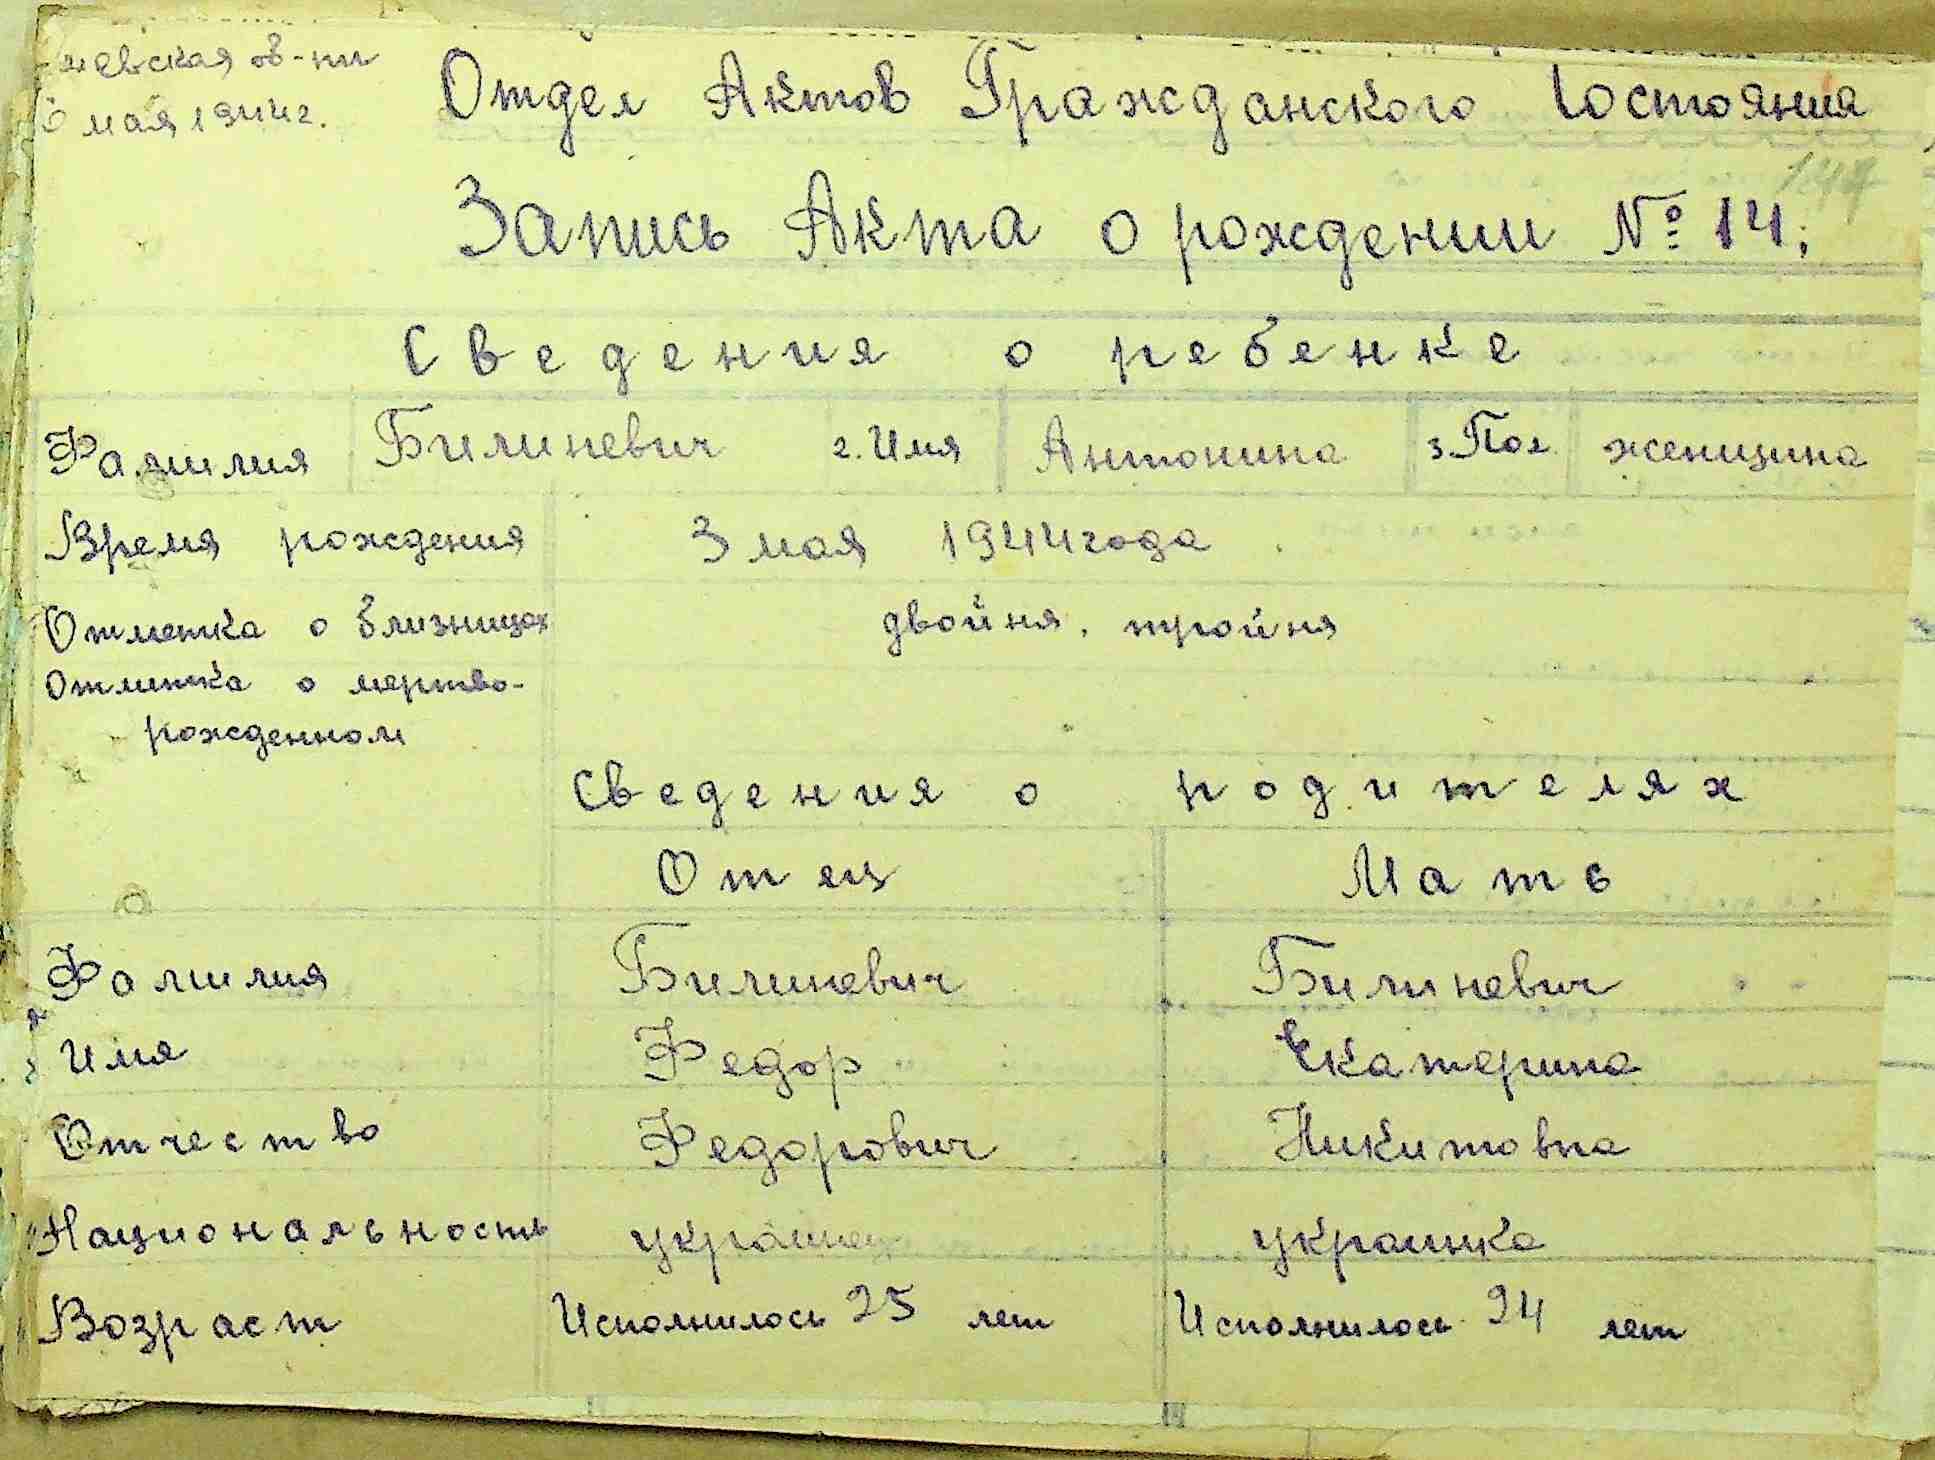 невская об-ти
мая 1944г.
Отдел Актов Гражданского Состояния
147
Запись Акта о рождении № 14;
Сведения о ребенке
Фамилия Билиневич 2. Имя Антонина 3. Пол женщина
Время рождения 3 мая 1944 года
Отметка о близницах двойня, тройня
Отметка о мертво-
рожденном
Сведения о родителях
Отец Мать
Фамилия Билиневич Билиневич
Имя Федор Екатерина
Отчество Федорович Никитовна
Национальность украинец украинка
Возраст Исполнилось 25 лет Исполнилось 24 лет